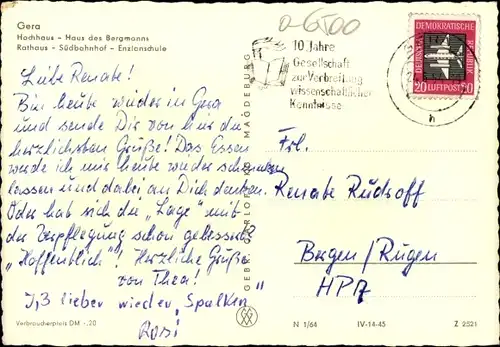 Gera
Hochhaus - Haus des Bergmanns
Rathaus - Südbahnhof - Enzianschule
Liebe Renate!
Bin heute wieder in Gera
und sende Dir von hier die
herzlichsten Grüße! Das Essen
werde ich mir heute wieder schmecken
lassen und dabei an Dich denken.
Oder hat sich die „Lage" mit
der Verpflegung schon gebessert?
„Hoffentlich"! Herzliche Grüße
von Thea!
lieber wieder „Spalken"
Rosi
Verbraucherpreis DM -.20
GEBR. GARLOFF KG MAGDEBURG
10 Jahre
Gesellschaft
zur Verbreitung
wissenschaftlicher
Kenntnisse
DEUTSCHE DEMOKRATISCHE REPUBLIK
20 LUFTPOST 20
h
Frl.
Renate Rudroff
Bergen/Rügen
N 1/64 IV-14-45 Z 2521